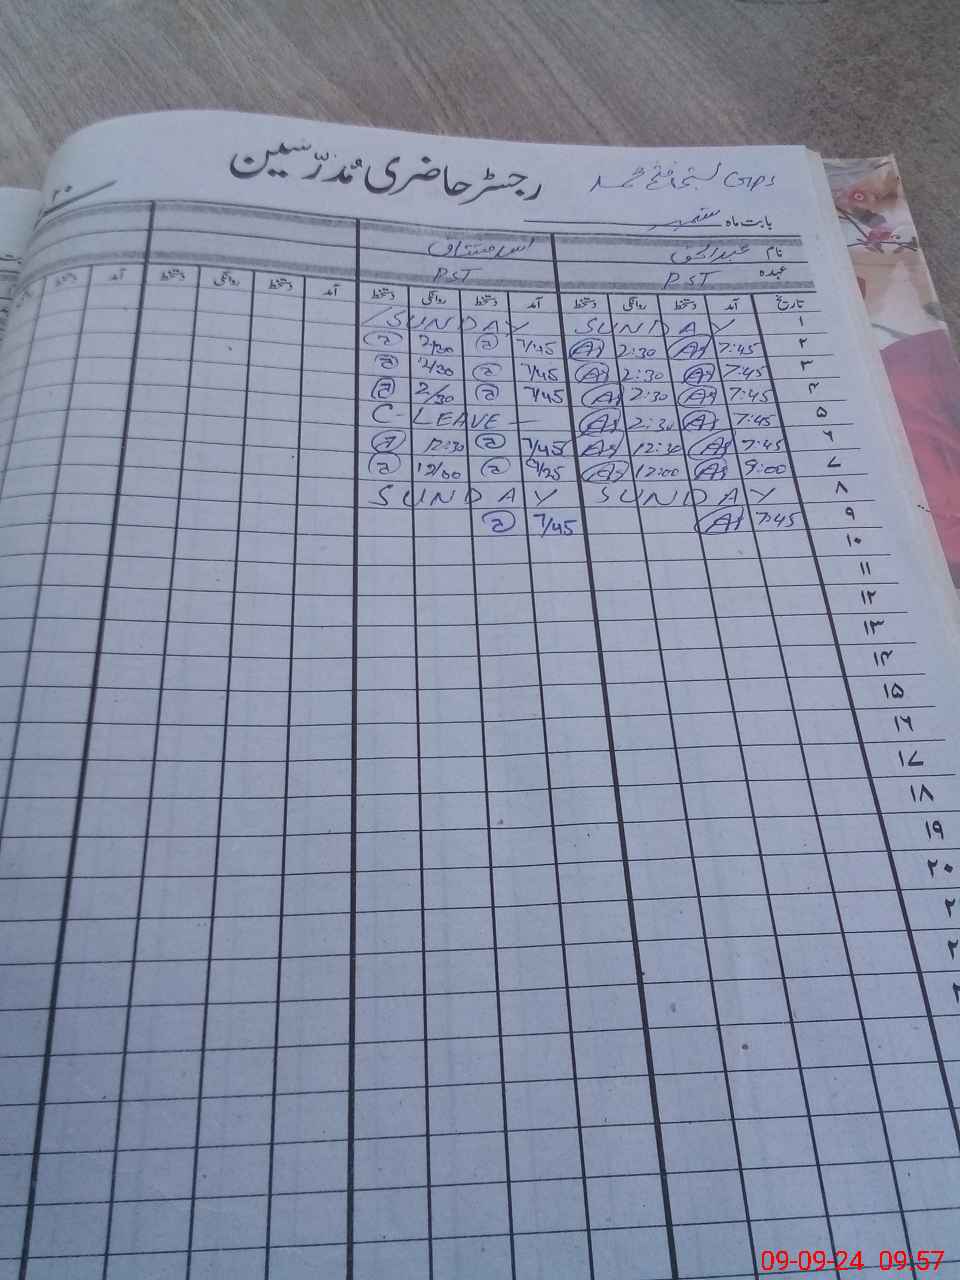 GPS بستی فتح محمد
رجسٹر حاضری مُدرّسین
بابت ماہ ستمبر ۲۰
نام عبدالحق
عہدہ PST PST
تاریخ آمد دستخط روانگی دستخط آمد دستخط روانگی دستخط آمد دستخط روانگی دستخط آمد دستخط
۱ SUNDAY SUNDAY
۲ 7:45 2:30 7/45 2/30
۳ 7:45 2:30 7/45 2/30
۴ 7:45 2:30 7/45 2/30
۵ 7:45 2:30 C-LEAVE
۶ 7:45 12:30 7/45 12:30
۷ 9:00 12:00 12/00
۸ SUNDAY SUNDAY
۹ 7:45 7/45
۱۰
۱۱
۱۲
۱۳
۱۴
۱۵
۱۶
۱۷
۱۸
۱۹
۲۰
۲
۲
09-09-24 09:57